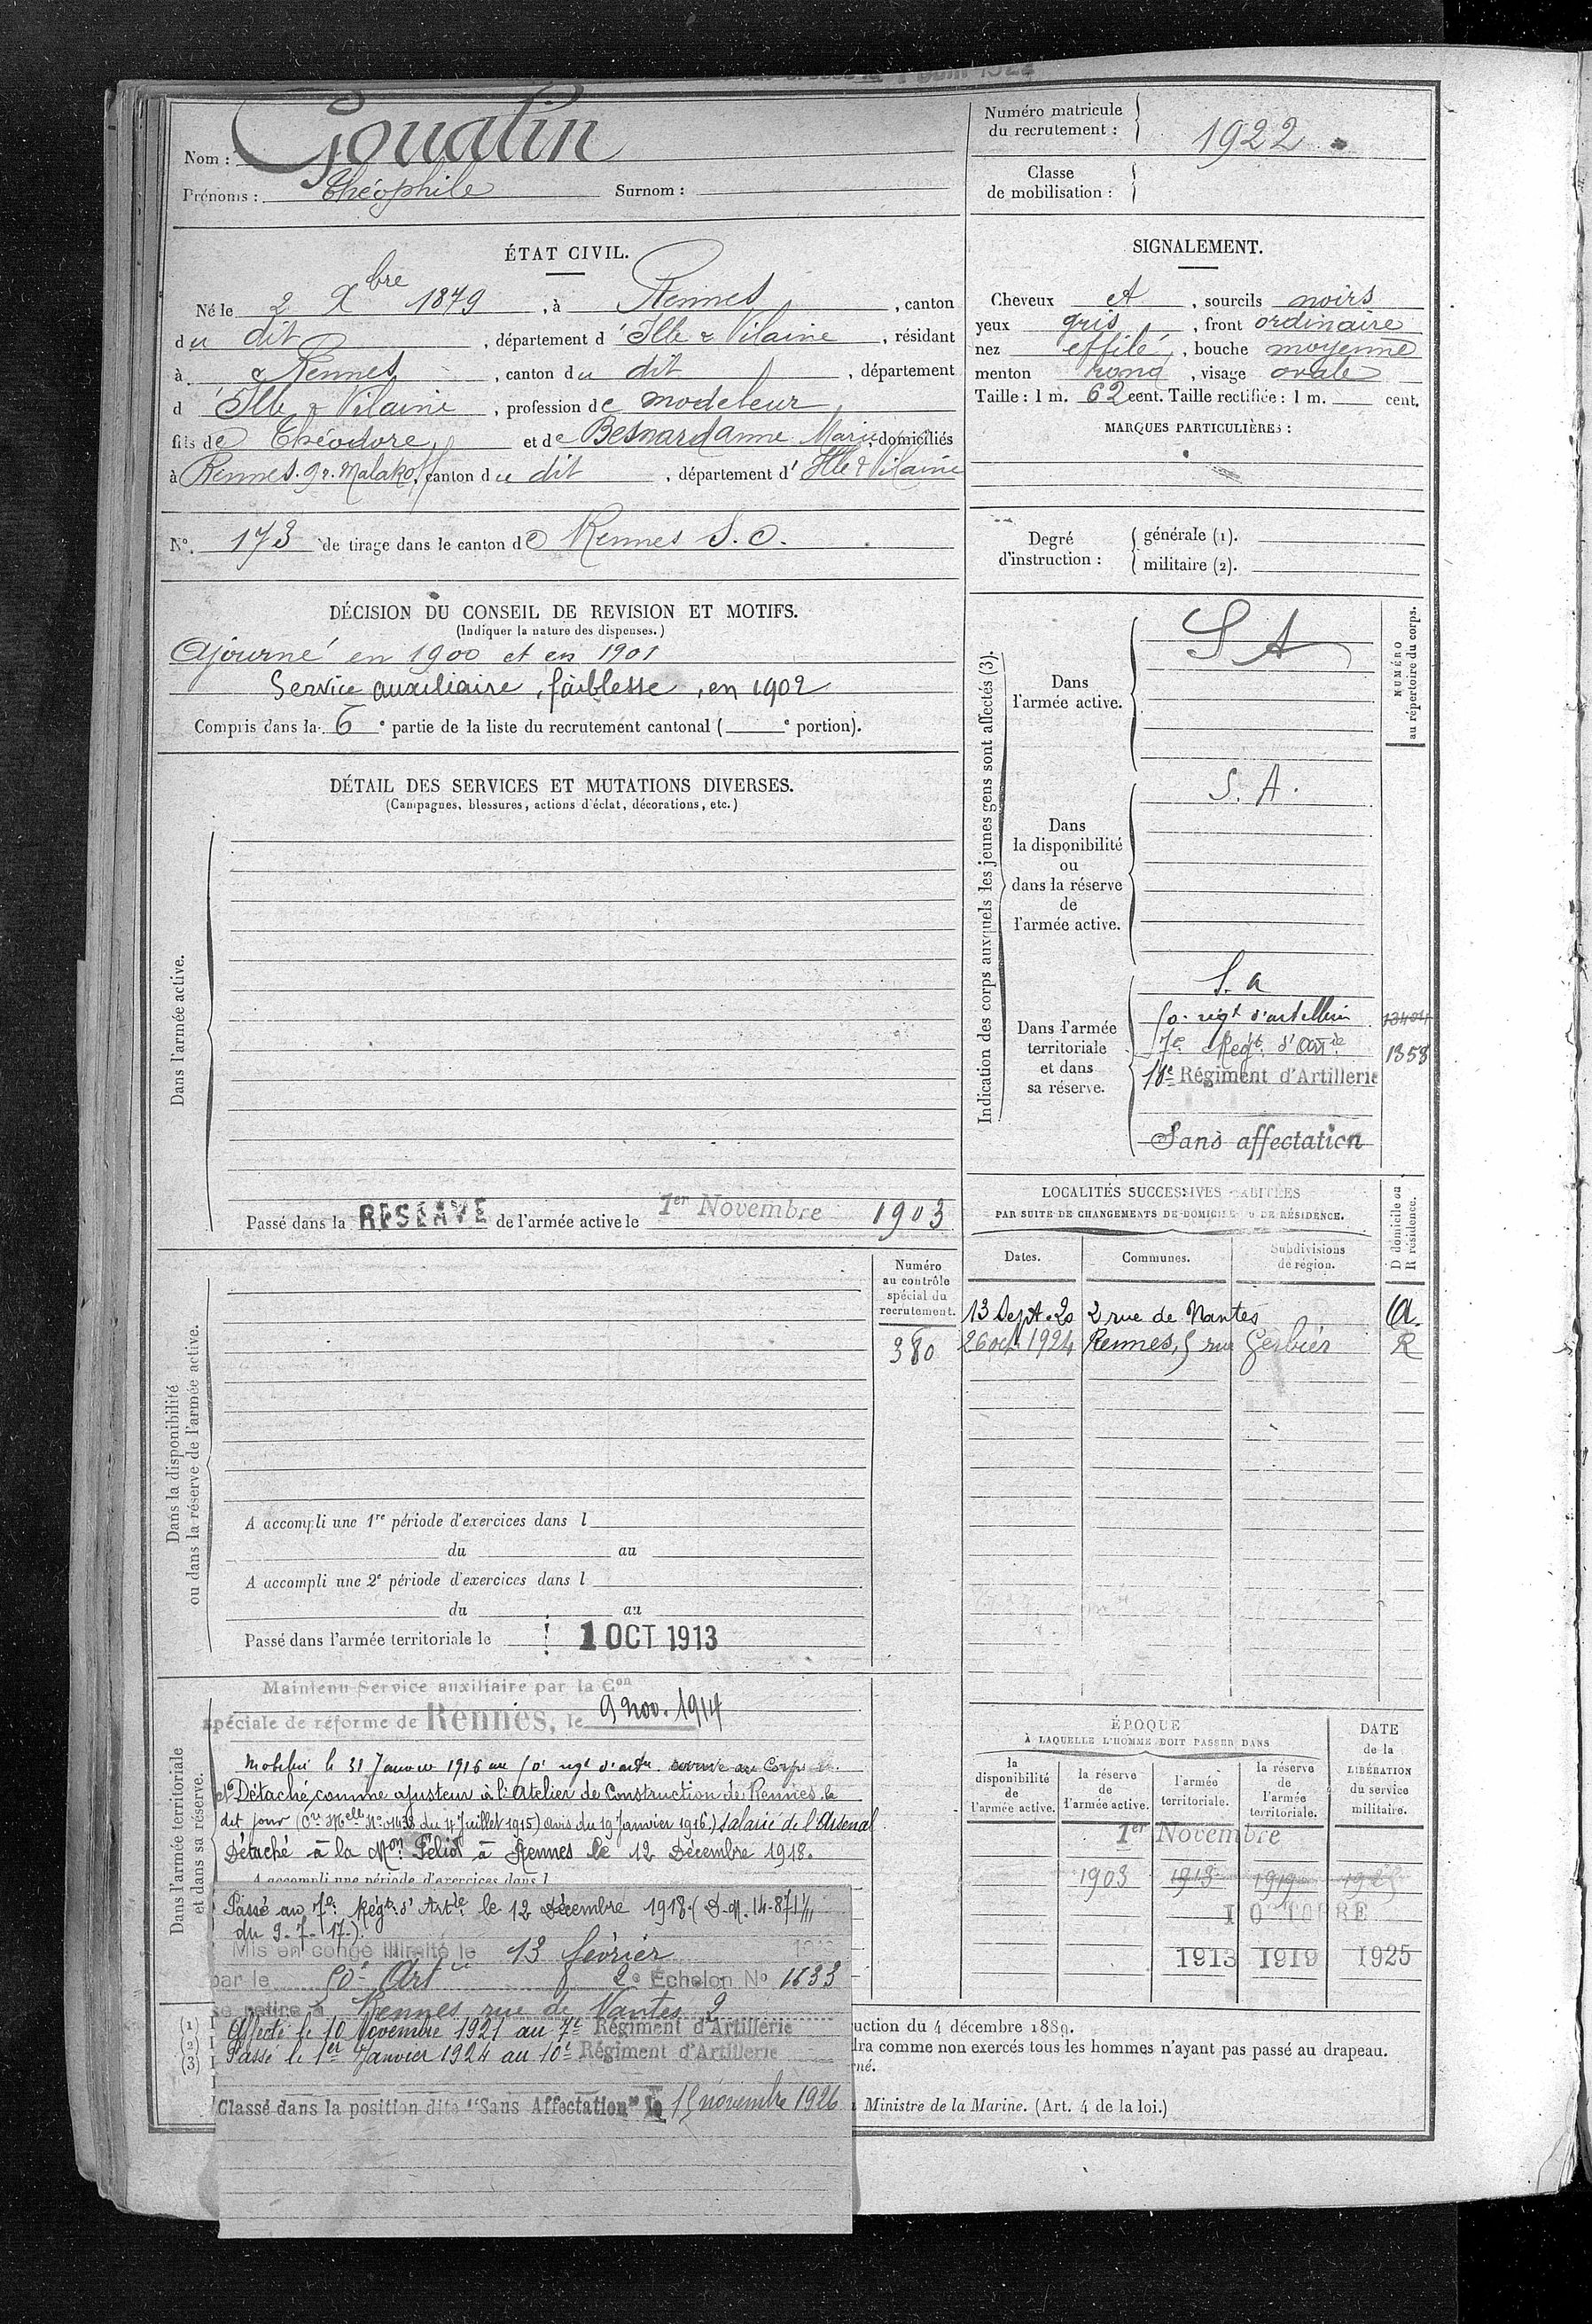 Nom : Goualin
Prénoms : Théophile Surnom :
Numéro matricule du recrutement : 1922
Classe de mobilisation :
ÉTAT CIVIL.
Né le 2 Xbre 1879, à Rennes, canton
du dit, département d'Ille & Vilaine, résidant
à Rennes, canton du dit, département
d'Ille & Vilaine, profession de modeleur
fils de Théodore et de Besnard Anne Marie domiciliés
à Rennes. Malakoff, canton du dit, département d'Ille & Vilaine
N° 173 de tirage dans le canton de Rennes S. O.
SIGNALEMENT.
Cheveux et, sourcils noirs
yeux gris, front ordinaire
nez effilé, bouche moyenne
menton rond, visage ovale
Taille : 1 m. 62 cent. Taille rectifiée : 1 m. cent.
MARQUES PARTICULIÈRES :
Degré d'instruction :
générale (1).
militaire (2).
DÉCISION DU CONSEIL DE REVISION ET MOTIFS.
(Indiquer la nature des dispenses.)
Ajourné en 1900 et en 1901
Service auxiliaire, faiblesse, en 1902
Compris dans la 6e partie de la liste du recrutement cantonal ( e portion).
DÉTAIL DES SERVICES ET MUTATIONS DIVERSES.
(Campagnes, blessures, actions d'éclat, décorations, etc.)
Dans l'armée active.
Passé dans la RESERVE de l'armée active le 1er Novembre 1903
Indication des corps auxquels les jeunes gens sont affectés (3).
NUMÉRO
au répertoire du corps.
Dans
l'armée active.
S A
Dans
la disponibilité
ou
dans la réserve
de
l'armée active.
S. A.
Dans l'armée
territoriale
et dans
sa réserve.
S. a
50e regt d'artillerie
7e Regt d'Artie 1358
10e Régiment d'Artillerie
Sans affectation
LOCALITÉS SUCCESSIVES HABITÉES
PAR SUITE DE CHANGEMENTS DE DOMICILE OU DE RÉSIDENCE.
D domicile ou
R résidence.
Dates. Communes. Subdivisions de région.
13 Sept. 20 2 rue de Nantes
26 oct 1924 Rennes, 5 rue Gerbier R
Dans la disponibilité
ou dans la réserve de l'armée active.
Numéro
au contrôle
spécial du
recrutement.
380
A accompli une 1re période d'exercices dans l
du au
A accompli une 2e période d'exercices dans l
du au
Passé dans l'armée territoriale le 1 OCT 1913
Dans l'armée territoriale
et dans sa réserve.
Maintenu Service auxiliaire par la Con
spéciale de réforme de Rennes, le 9 nov. 1914
Mobilisé le 31 Janvier 1916 au 50e regt d'artie arrivé au Corps
et Détaché comme ajusteur à l'Atelier de Construction de Rennes le
dit jour (Cre Melle du 4 Juillet 1915) avis du 19 Janvier 1916) salarié de l'Arsenal
Détaché à la Mon Péliot à Rennes le 12 Décembre 1918.
A accompli une période d'exercices dans l
Passé au 7e Régt d'Artie le 12 Décembre 1918 (D.M. 14-871
du 9-7-17-).
Mis en congé illimité le 13 février 1919
par le 50e Artie 2e Échelon N° 1633
se retire à Rennes rue de Nantes 2
Affecté le 10 Novembre 1921 au 7e Régiment d'Artillerie
Passé le 1er Janvier 1924 au 10e Régiment d'Artillerie
Classé dans la position dite "Sans Affectation" le 15 novembre 1926
ÉPOQUE
À LAQUELLE L'HOMME DOIT PASSER DANS
la disponibilité de l'armée active.
la réserve de l'armée active.
l'armée territoriale.
la réserve de l'armée territoriale.
DATE
de la
LIBÉRATION
du service
militaire.
1er Novembre
1903 1913 1919 1925
1 OCTOBRE
1913 1919 1925
(1)
(2)
(3)
uction du 4 décembre 1889.
dra comme non exercés tous les hommes n'ayant pas passé au drapeau.
né.
Ministre de la Marine. (Art. 4 de la loi.)